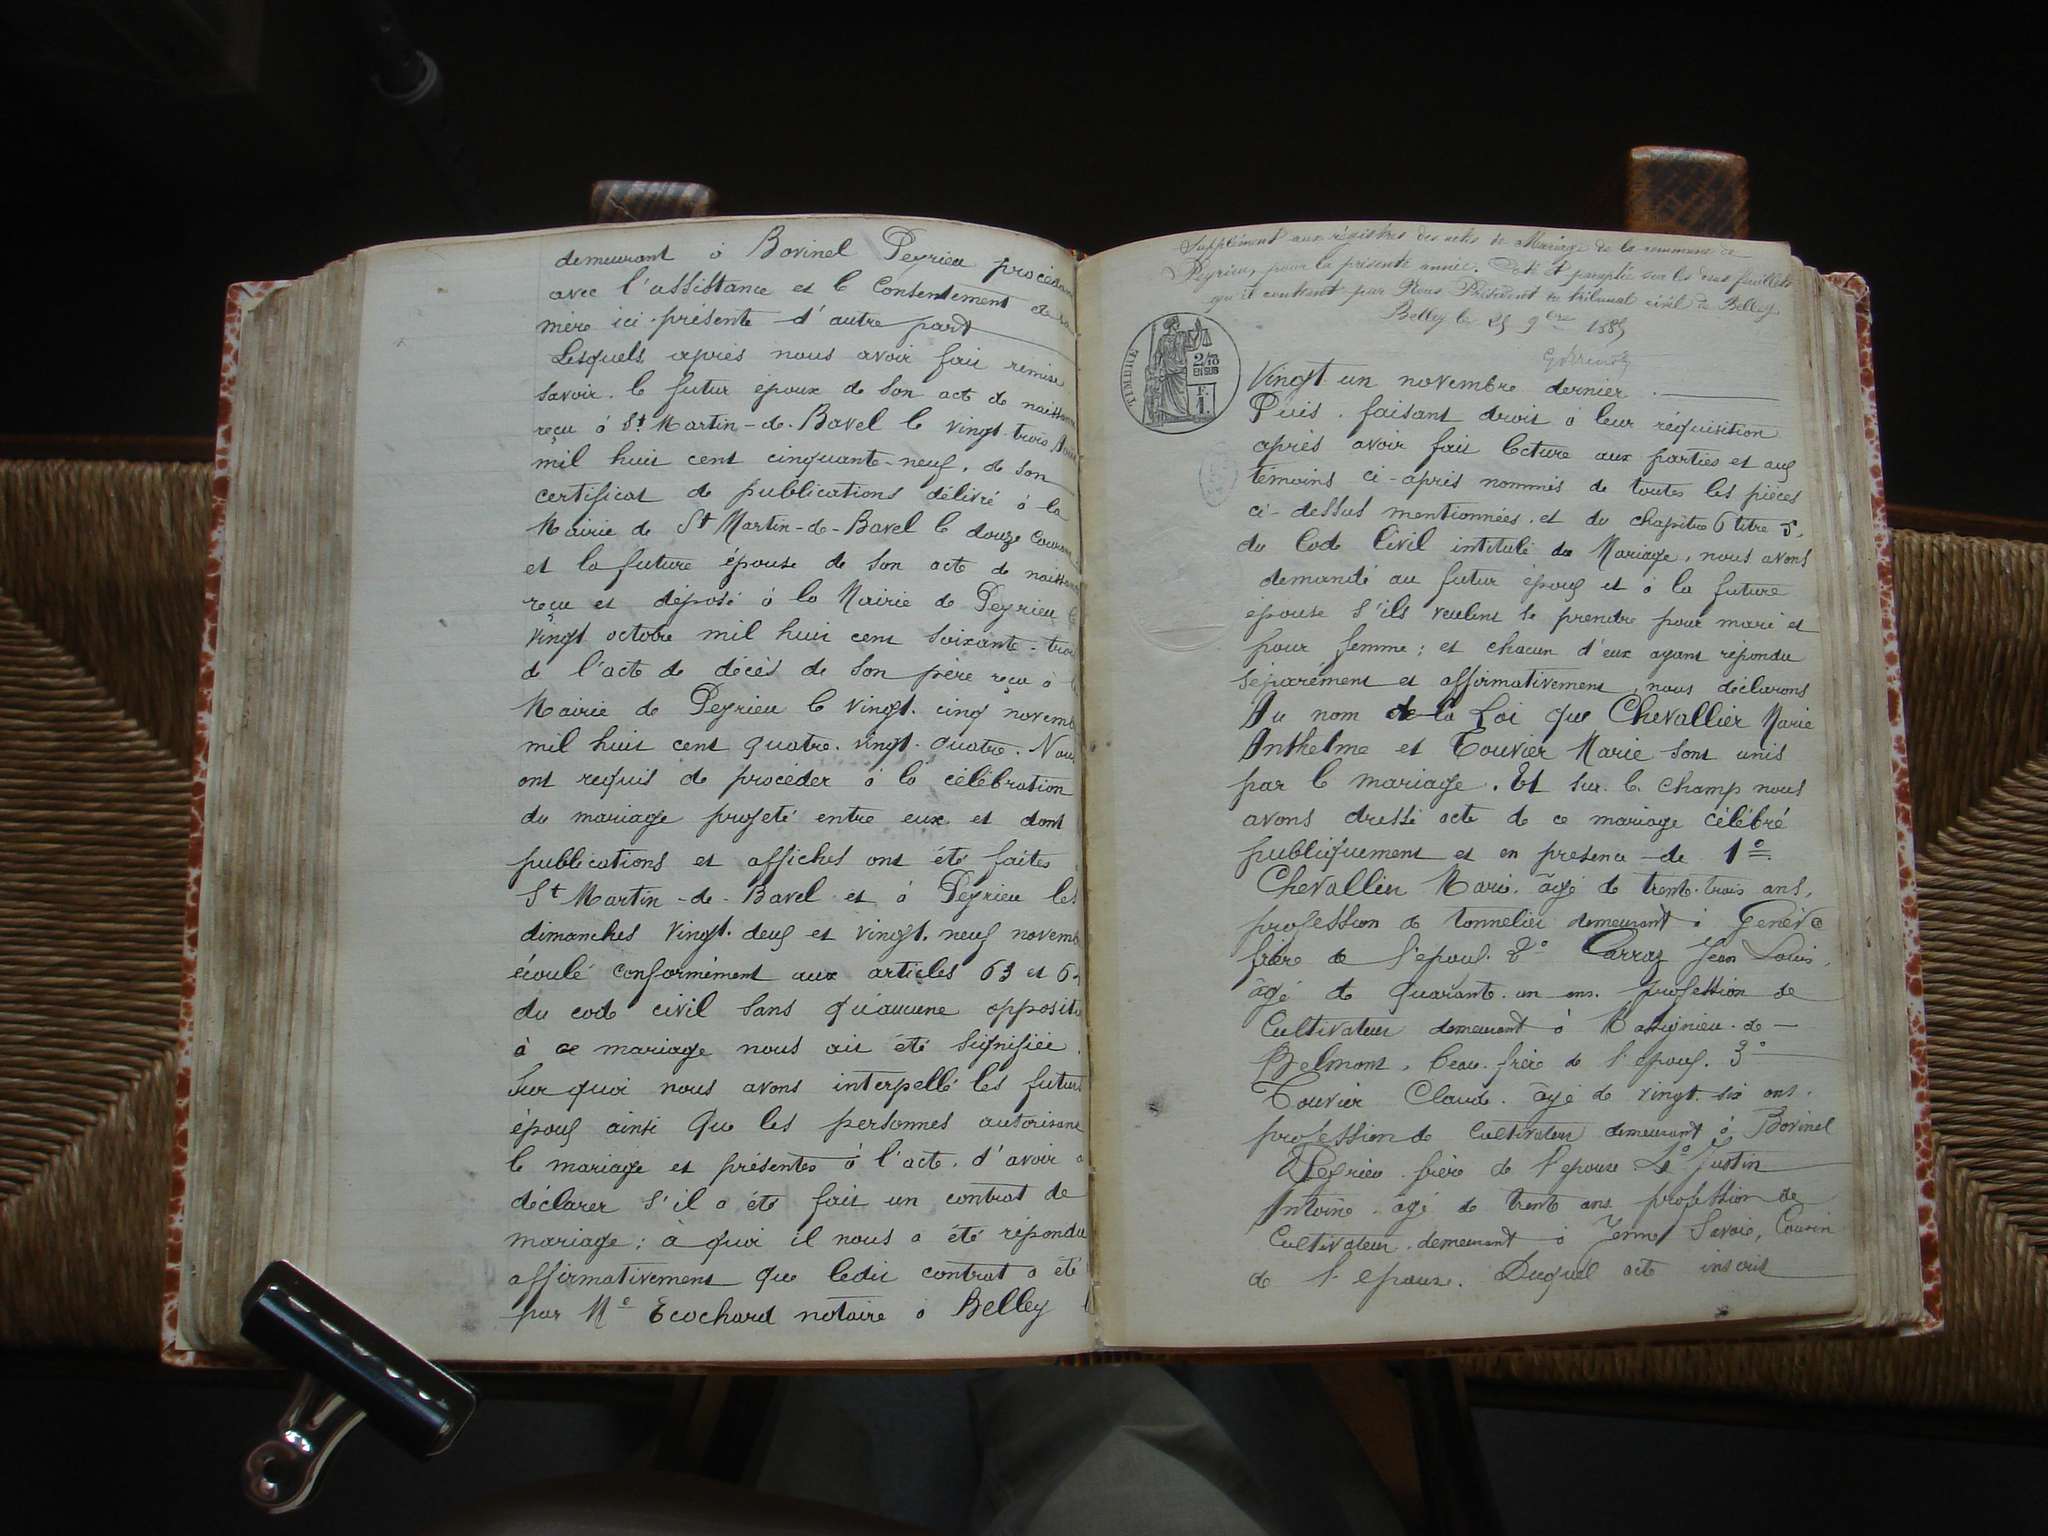 demeurant à Bovinel Peyrieu procédant
avec l'assistance et le Consentement de sa
mère ici présente d'autre part
Lesquels après nous avoir fait remise
savoir. le futur époux de son acte de naissance
reçu à St Martin-de-Bavel le vingt-trois
mil huit cent cinquante-neuf, de son
certificat de publications délivré à la
Mairie de St Martin-de-Bavel le douze Courant
et la future épouse de son acte de naissance
reçu et déposé à la Mairie de Peyrieu le
vingt octobre mil huit cent soixante-trois
de l'acte de décès de son père reçu à la
Mairie de Peyrieu le vingt-cinq novemb
mil huit cent quatre-vingt-quatre. Nous
ont requis de procéder à la célébration
du mariage projeté entre eux et dont
publications et affiches ont été faites
St Martin-de-Bavel et à Peyrieu les
dimanches vingt-deux et vingt-neuf novemb
écoulé conformément aux articles 63 et 64
du code civil sans qu'aucune oppositi
à ce mariage nous ait été signifiée.
Sur quoi nous avons interpellé les futurs
époux ainsi que les personnes autorisant
le mariage et présentes à l'acte, d'avoir à
déclarer s'il a été fait un contrat de
mariage; à quoi il nous a été répondu
affirmativement que ledit contrat a été
par Me Ecochard notaire à Belley le
Supplément aux régistres des actes de Mariage de la commune de
Peyrieu, pour la présente année. Coté et paraphé sur les deux feuillets
qu'il contient par Nous Président du tribunal civil de Belley
Belley le 25 9bre 1885
TIMBRE
2/10
EN SUS
F.
1.
Vingt un novembre dernier.
Puis, faisant droit à leur réquisition
après avoir fait lecture aux parties et aux
témoins ci-après nommés de toutes les pièces
ci-dessus mentionnées, et du chapitre 6 titre 5,
du Code Civil intitulé du Mariage, nous avons
demandé au futur époux et à la future
épouse s'ils veulent se prendre pour mari et
pour femme; et chacun d'eux ayant répondu
séparément et affirmativement, nous déclarons
Au nom de la Loi que Chevallier Marie
Anthelme et Touvier Marie sont unis
par le mariage. Et sur le champ nous
avons dressé acte de ce mariage célébré
publiquement et en présence de 1°
Chevallier Marie. âgé de trente-trois ans,
profession de tonnelier demeurant à Genève
frère de l'époux. 2° Carraz Jean Louis,
âgé de quarante-un ans. profession de
Cultivateur demeurant à Massignieu-de-
Belmont, beau-frère de l'époux. 3°
Touvier Claude. âgé de vingt-six ans.
profession de Cultivateur demeurant à Bovinel
Peyrieu frère de l'épouse 4° Justin
Antoine âgé de trente ans profession de
Cultivateur demeurant à Yenne Savoie, Cousin
de l'épouse. Duquel acte inscrit